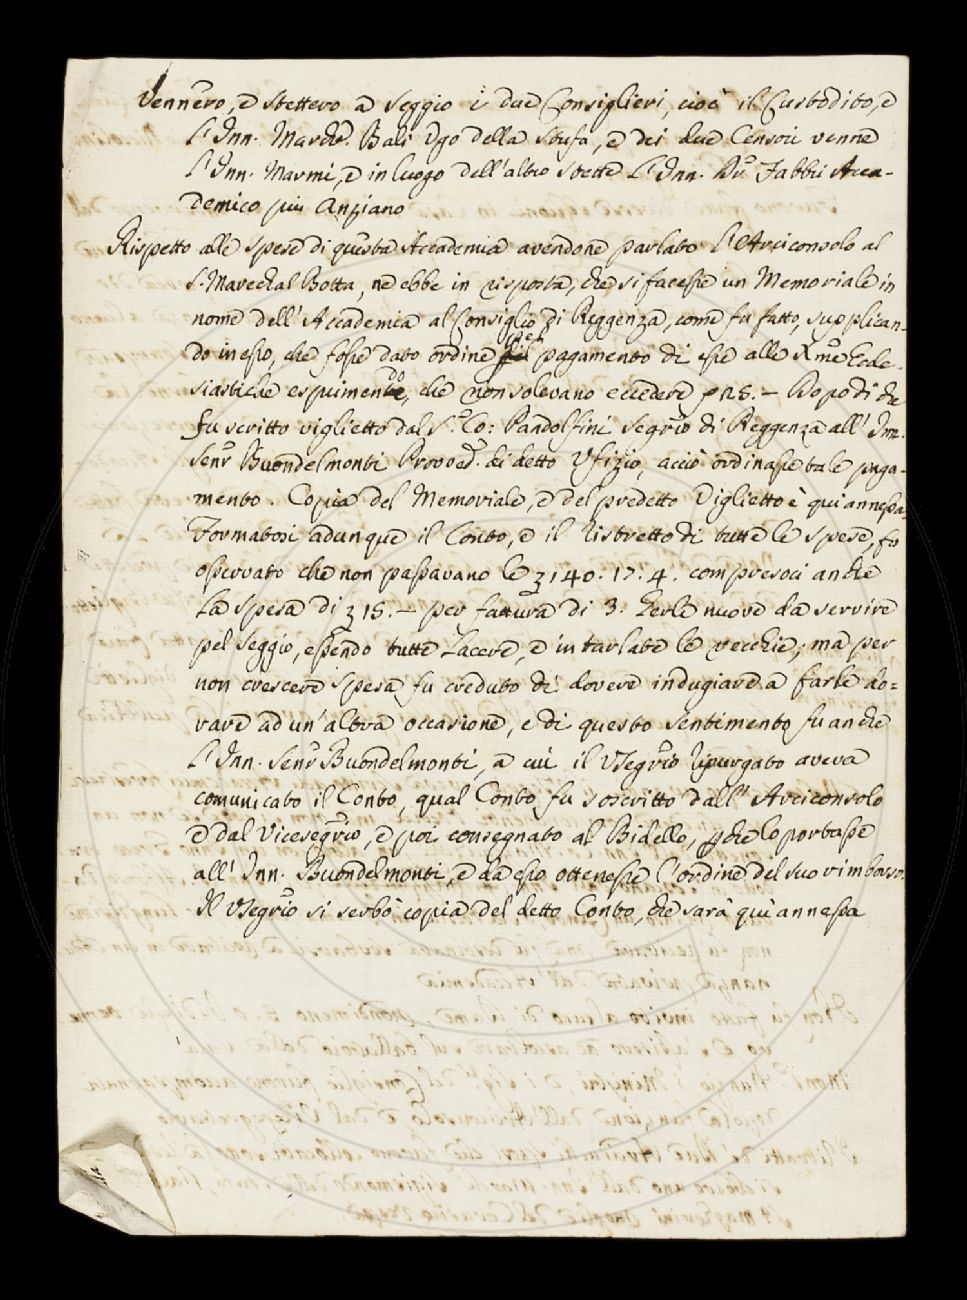 Vennero, e stettero a Seggio i due Consiglieri, cioè il Custodito, e
l'Inn. March. Balì Ugo della Stufa, e dei due Censori venne
l'Inn. Marmi, e in luogo dell'altro stette l'Inn. Dr. Fabbri Acca-
demico più Anziano
Rispetto alle spese di questa Accademia avendone parlato l'Arciconsolo al
S. Marechal Botta, ne ebbe in risposta, che si facesse un Memoriale in
nome dell'Accademia al Consiglio di Reggenza, come fu fatto, supplican-
do in esso, che fosse dato ordine pel pagamento di esse alle Xme Eccle-
siastiche espuimendo, che non solevano eccedere 25. — Dopo di che
fu scritto viglietto dal S.r Co: Pandolfini Segrio di Reggenza all'Inn.
Senr Buondelmonti Provved. di detto Ufizio, acciò ordinasse tale paga-
mento. Copia del Memoriale, e del predetto Biglietto è qui annessa.
Formatosi adunque il Conto, e il Ristretto di tutte le spese, fu
osservato che non passavano le 140. 17. 4. compresoci anche
la spesa di 15. — per fattura di 3. Gerle nuove da servire
pel Seggio, essendo tutte lacere, e intarlate le vecchie; ma per
non crescere spesa fu creduto di dovere indugiare a farle do=
rare ad un'altra occasione, e di questo sentimento fu anche
l'Inn. Senr Buondelmonti, a cui il VSegrio Ripurgato aveva
comunicato il Conto, qual Conto fu soscritto dall'Arciconsolo
e dal Vicesegrio, e poi consegnato al Bidello, pche lo portasse
all'Inn. Buondelmonti, e da esso ottenesse l'ordine del suo rimborso.
Il VSegrio si serbò copia del detto Conto, che sarà qui annessa